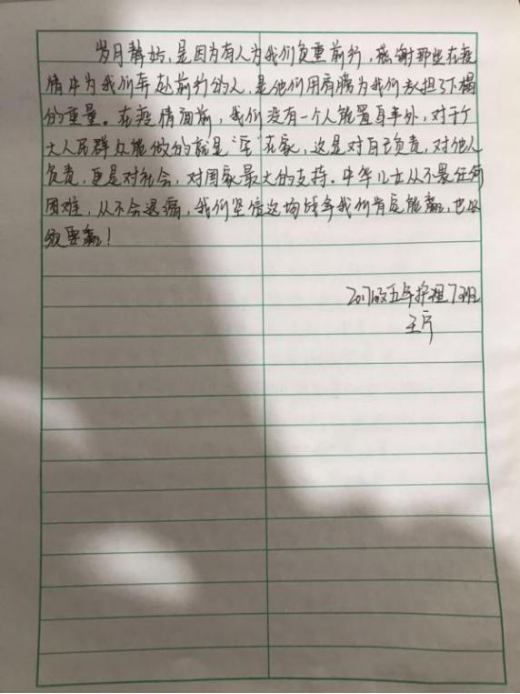 岁月静好，是因为有人为我们负重前行，感谢那些在疫
情中为我们奔赴前行的人，是他们用肩膀为我们承担了下塌
的重量。在疫情面前，我们没有一个人能置身事外，对于广
大人民群众能做的就是“宅”在家，这是对自己负责，对他人
负责，更是对社会，对国家最大的支持。中华儿女从不畏任何
困难，从不会退缩，我们坚信这场战争我们肯定能赢，也必
须要赢！
2017级五年护理7班
王